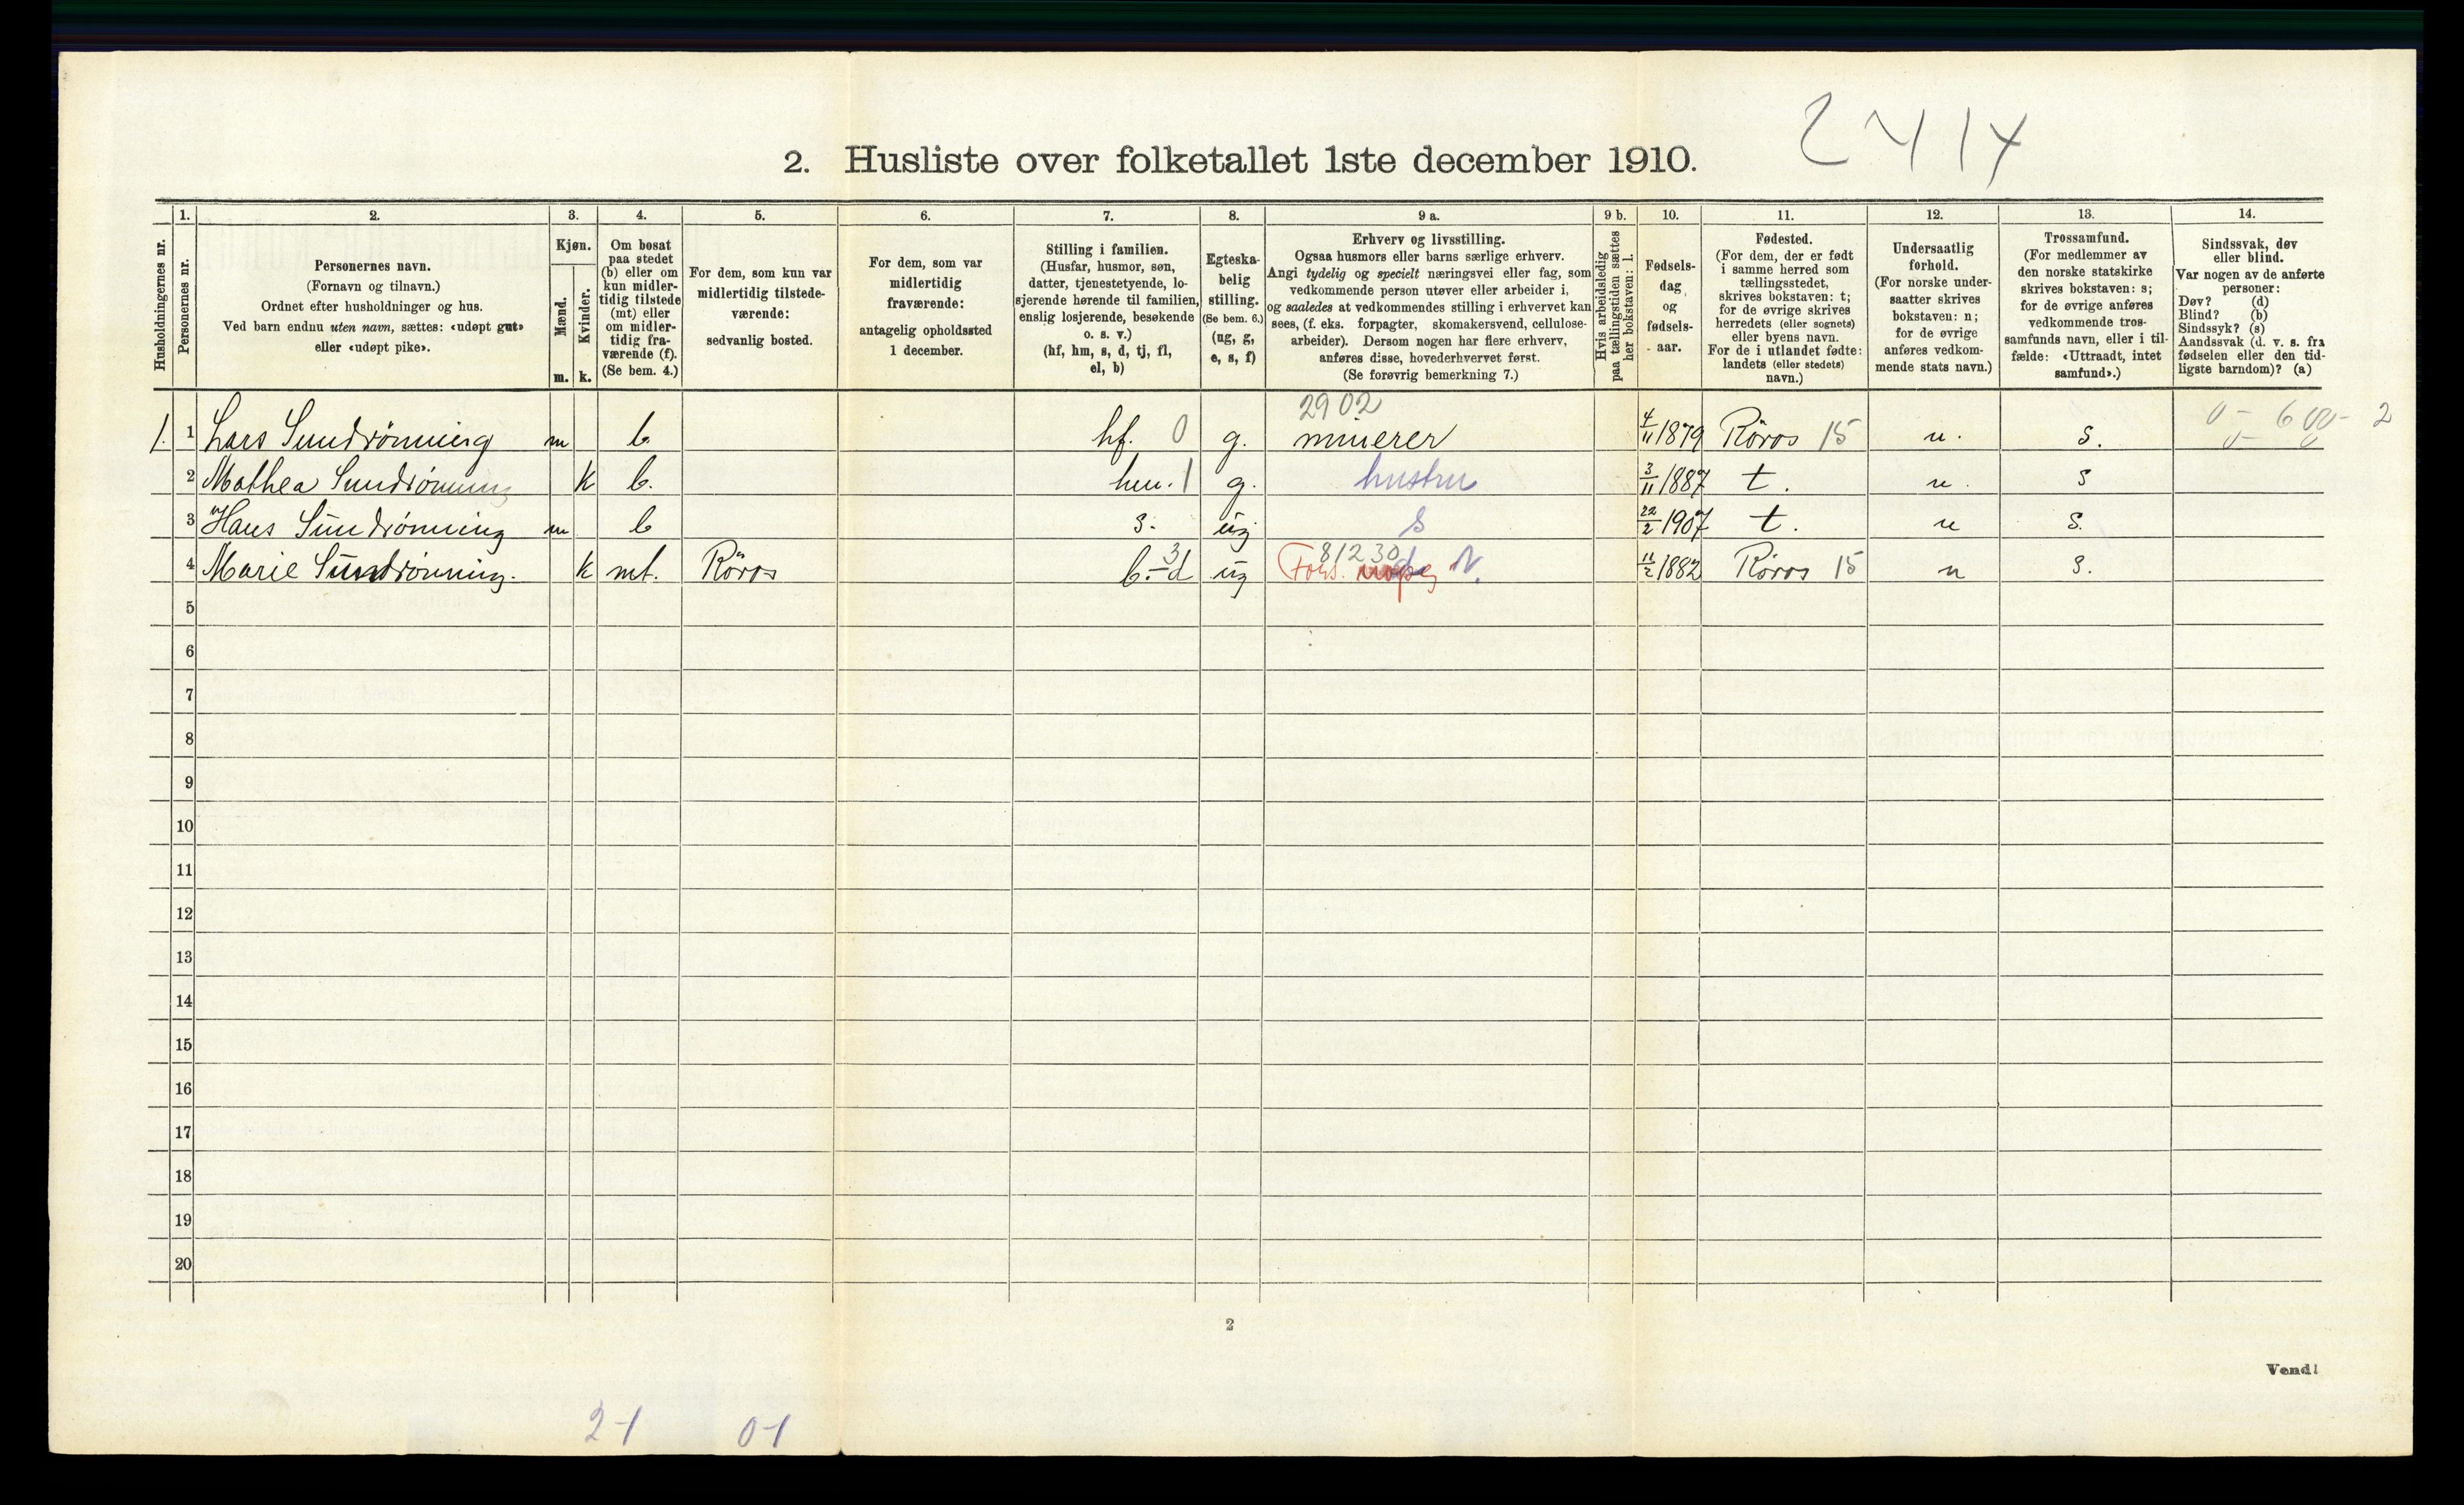 2414
2. Husliste over folketallet 1ste december 1910.
1. 2. 3. 4. 5. 6. 7. 8. 9 a. 9 b. 10. 11. 12. 13. 14.
Husholdningernes nr.
Personernes nr.
Personernes navn.
(Fornavn og tilnavn.)
Ordnet efter husholdninger og hus.
Ved barn endnu uten navn, sættes: «udøpt gut»
eller «udøpt pike».
Kjøn.
Mænd.
m.
Kvinder.
k.
Om bosat
paa stedet
(b) eller om
kun midler-
tidig tilstede
(mt) eller
om midler-
tidig fra-
værende (f).
(Se bem. 4.)
For dem, som kun var
midlertidig tilstede-
værende:
sedvanlig bosted.
For dem, som var
midlertidig
fraværende:
antagelig opholdssted
1 december.
Stilling i familien.
(Husfar, husmor, søn,
datter, tjenestetyende, lo-
sjerende hørende til familien,
enslig losjerende, besøkende
o. s. v.)
(hf, hm, s, d, tj, fl,
el, b)
Egteska-
belig
stilling.
(Se bem. 6.)
(ug, g,
e, s, f)
Erhverv og livsstilling.
Ogsaa husmors eller barns særlige erhverv.
Angi tydelig og specielt næringsvei eller fag, som
vedkommende person utøver eller arbeider i,
og saaledes at vedkommendes stilling i erhvervet kan
sees, (f. eks. forpagter, skomakersvend, cellulose-
arbeider). Dersom nogen har flere erhverv,
anføres disse, hovederhvervet først.
(Se forøvrig bemerkning 7.)
Hvis arbeidsledig
paa tællingstiden sættes
her bokstaven: l.
Fødsels-
dag
og
fødsels-
aar.
Fødested.
(For dem, der er født
i samme herred som
tællingsstedet,
skrives bokstaven: t;
for de øvrige skrives
herredets (eller sognets)
eller byens navn.
For de i utlandet fødte:
landets (eller stedets)
navn.)
Undersaatlig
forhold.
(For norske under-
saatter skrives
bokstaven: n;
for de øvrige
anføres vedkom-
mende stats navn.)
Trossamfund.
(For medlemmer av
den norske statskirke
skrives bokstaven: s;
for de øvrige anføres
vedkommende tros-
samfunds navn, eller i til-
fælde: «Uttraadt, intet
samfund».)
Sindssvak, døv
eller blind.
Var nogen av de anførte
personer:
Døv? (d)
Blind? (b)
Sindssyk? (s)
Aandssvak (d. v. s. fra
fødselen eller den tid-
ligste barndom)? (a)
2902
1. 1 Lars Sundrönning m b hf. 0 g. minerer 4/11 1879 Röros 15 n. s.
2 Mathea Sundrönning k b. hm. 1 g. hustru 3/11 1887 t. n. s
3 Hans Sundrönning m b s. ug s 22/2 1907 t. n s.
4 Marie Sundrönning. k mt. Röros b.-d 3 ug 81230 Fors. 11/2 1882 Röros 15 n s.
5
6
7
8
9
10
11
12
13
14
15
16
17
18
19
20
2
Vend!
2-1 0-1